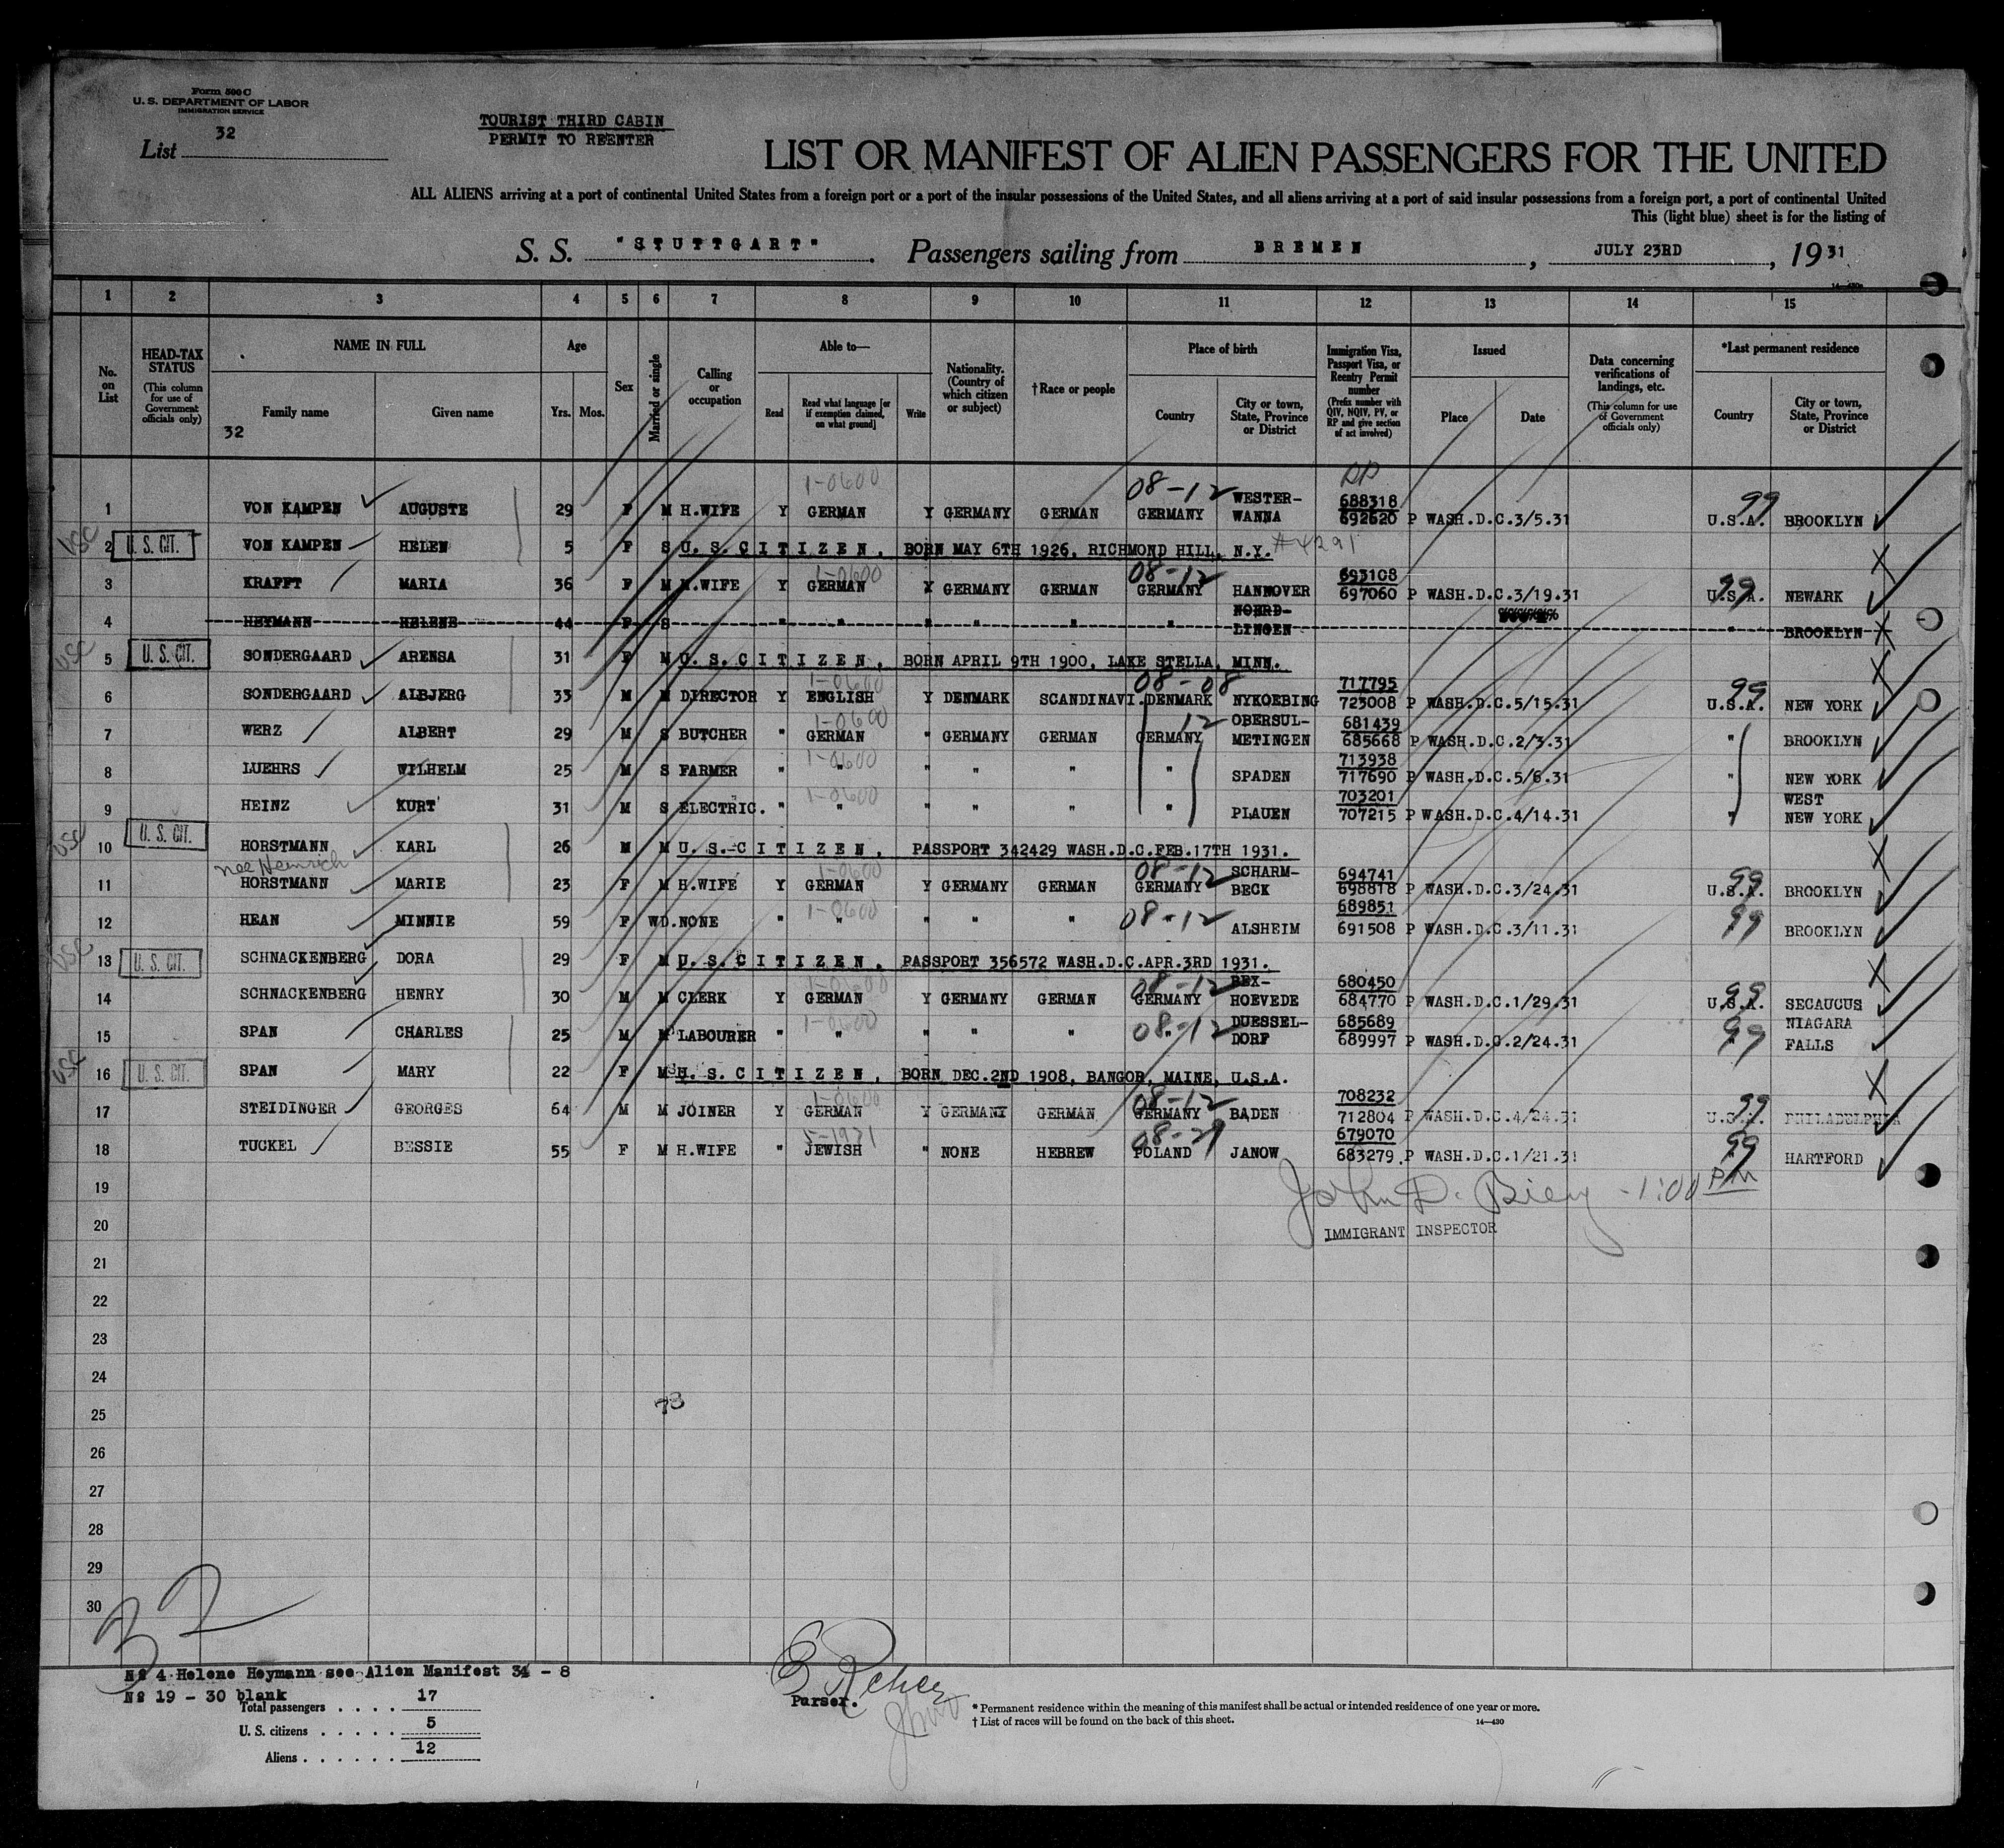 Form 500 C
U. S. DEPARTMENT OF LABOR
IMMIGRATION SERVICE
List 32
TOURIST THIRD CABIN
PERMIT TO REENTER
LIST OR MANIFEST OF ALIEN PASSENGERS FOR THE UNITED
ALL ALIENS arriving at a port of continental United States from a foreign port or a port of the insular possessions of the United States, and all aliens arriving at a port of said insular possessions from a foreign port, a port of continental United
This (light blue) sheet is for the listing of
S. S. "STUTTGART". Passengers sailing from BREMEN, JULY 23RD, 1931
14—430a
1 2 3 4 5 6 7 8 9 10 11 12 13 14 15
No. on List
HEAD-TAX STATUS (This column for use of Government officials only)
NAME IN FULL
Family name Given name
32
Age
Yrs. Mos.
Sex
Married or single
Calling or occupation
Able to—
Read Read what language [or if exemption claimed, on what ground] Write
Nationality. (Country of which citizen or subject)
† Race or people
Place of birth
Country City or town, State, Province or District
Immigration Visa, Passport Visa, or Reentry Permit number (Prefix number with QIV, NQIV, PV, or RP and give section of act involved)
Issued
Place Date
Data concerning verifications of landings, etc. (This column for use of Government officials only)
*Last permanent residence
Country City or town, State, Province or District
1-0600 08-12 WESTER- 688318 99
1 VON KAMPEN AUGUSTE 29 F M H.WIFE Y GERMAN Y GERMANY GERMAN GERMANY WANNA 692620 P WASH.D.C.3/5.31 U.S.A. BROOKLYN
USC 2 U. S. CIT. VON KAMPEN HELEN 5 F S U.S.CITIZEN, BORN MAY 6TH 1926, RICHMOND HILL, N.Y. #4291
1-0600 08-12 693108 99
3 KRAFFT MARIA 36 F M H.WIFE Y GERMAN Y GERMANY GERMAN GERMANY HANNOVER 697060 P WASH.D.C.3/19.31 U.S.A. NEWARK
4 HEYMANN HELENE 44 F S " " " " " " NOERD-LINGEN " BROOKLYN
USC 5 U. S. CIT. SONDERGAARD ARENSA 31 F M U.S.CITIZEN, BORN APRIL 9TH 1900, LAKE STELLA, MINN.
1-0600 08-08 717795 99
6 SONDERGAARD ALBJERG 33 M M DIRECTOR Y ENGLISH Y DENMARK SCANDINAVI. DENMARK NYKOEBING 723008 P WASH.D.C.5/15.31 U.S.A. NEW YORK
1-0600 12 OBERSUL- 681439
7 WERZ ALBERT 29 M S BUTCHER " GERMAN " GERMANY GERMAN GERMANY METINGEN 685668 P WASH.D.C.2/3.31 " BROOKLYN
1-0600 713938
8 LUEHRS WILHELM 25 M S FARMER " " " " " " SPADEN 717690 P WASH.D.C.5/6.31 " NEW YORK
1-0600 703201 WEST
9 HEINZ KURT 31 M S ELECTRIC. " " " " " " PLAUEN 707215 P WASH.D.C.4/14.31 " NEW YORK
USC 10 U. S. CIT. HORSTMANN KARL 26 M M U.S.CITIZEN, PASSPORT 342429 WASH.D.C.FEB.17TH 1931.
nee Heinrich 1-0600 08-12 SCHARM- 694741 99
11 HORSTMANN MARIE 23 F M H.WIFE Y GERMAN Y GERMANY GERMAN GERMANY BECK 698818 P WASH.D.C.3/24.31 U.S.A. BROOKLYN
1-0600 08-12 689851 99
12 HEAN MINNIE 59 F WD. NONE " " " " " ALSHEIM 691508 P WASH.D.C.3/11.31 BROOKLYN
USC 13 U. S. CIT. SCHNACKENBERG DORA 29 F M U.S.CITIZEN, PASSPORT 356572 WASH.D.C.APR.3RD 1931.
1-0600 08-12 BEX- 680450 99
14 SCHNACKENBERG HENRY 30 M M CLERK Y GERMAN Y GERMANY GERMAN GERMANY HOEVEDE 684770 P WASH.D.C.1/29.31 U.S.A. SECAUCUS
1-0600 08-12 DUESSEL- 685689 99 NIAGARA
15 SPAN CHARLES 25 M M LABOURER " " " " " " DORF 689997 P WASH.D.C.2/24.31 FALLS
USC 16 U. S. CIT. SPAN MARY 22 F M U.S.CITIZEN, BORN DEC.2ND 1908, BANGOR, MAINE, U.S.A.
1-0600 08-12 708232 99
17 STEIDINGER GEORGES 64 M M JOINER Y GERMAN Y GERMANY GERMAN GERMANY BADEN 712804 P WASH.D.C.4/24.31 U.S.A. PHILADELPHIA
5-1931 08-29 679070 99
18 TUCKEL BESSIE 55 F M H.WIFE " JEWISH " NONE HEBREW POLAND JANOW 683279 P WASH.D.C.1/21.31 HARTFORD
19
1:00 PM
20 IMMIGRANT INSPECTOR
21
22
23
24
25
26
27
28
29
30
32
No 4 Helene Heymann see Alien Manifest 34 - 8
No 19 - 30 blank
Total passengers . . . . 17
U. S. citizens . . . . . 5
Aliens . . . . . . 12
Purser.
* Permanent residence within the meaning of this manifest shall be actual or intended residence of one year or more.
† List of races will be found on the back of this sheet.
14—430